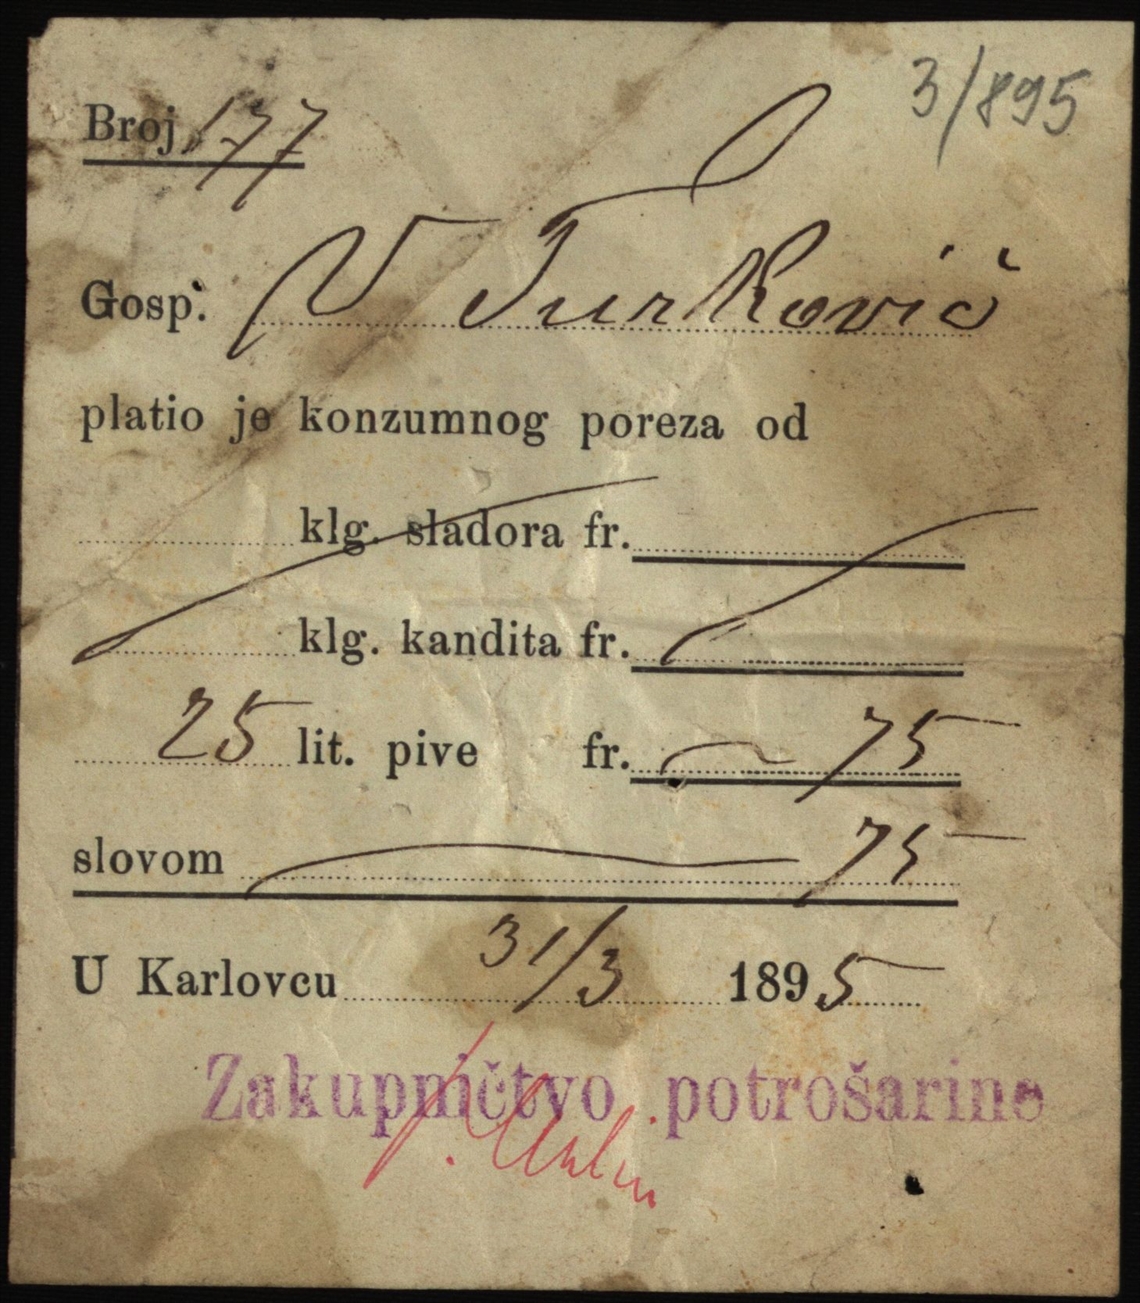 3/895
Broj 177
Gosp. V Turković
platio je konzumnog poreza od
klg. sladora fr.
klg. kandita fr.
25 lit. pive fr. 75
slovom 75
U Karlovcu 31/3 1895
Zakupničtvo potrošarine